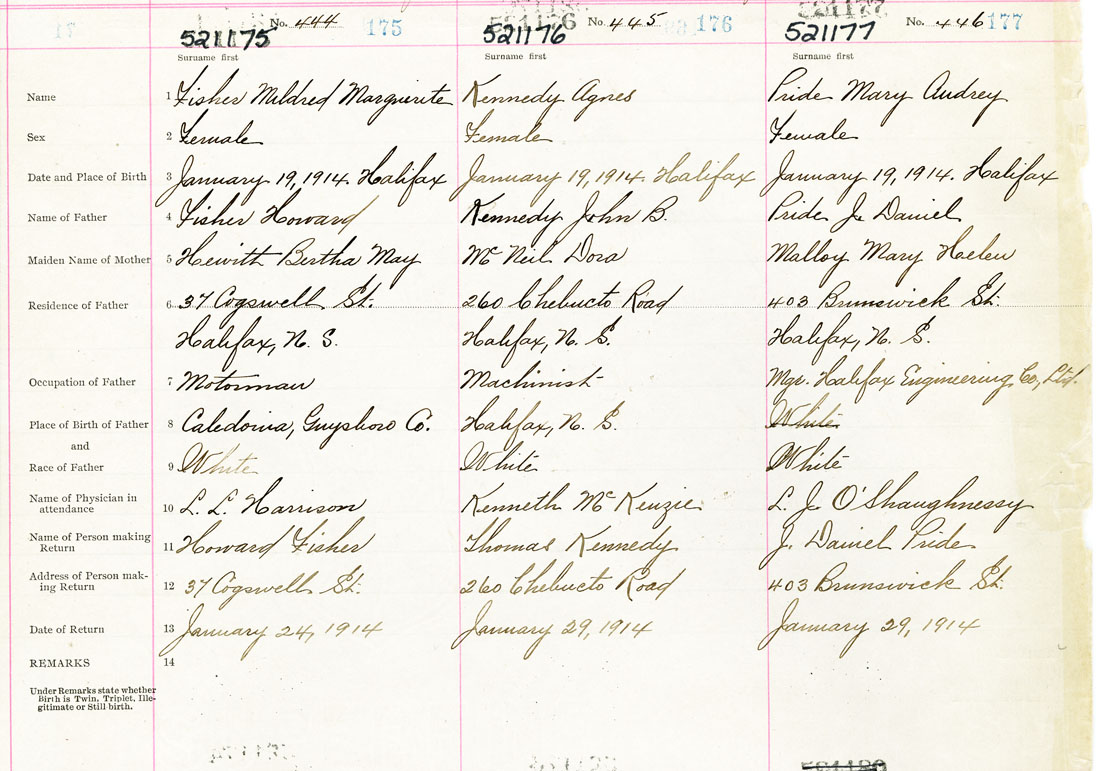 No. 444 175 521176 No. 445 176 521177 No. 446 177
17
521175 521176 521177
Surname first Surname first Surname first
Name 1 Fisher Mildred Marguerite Kennedy Agnes Pride Mary Audrey
Sex 2 Female Female Female
Date and Place of Birth 3 January 19, 1914. Halifax January 19, 1914. Halifax January 19, 1914. Halifax
Name of Father 4 Fisher Howard Kennedy John B. Pride J. Daniel
Maiden Name of Mother 5 Hewith Bertha May Mc Neil Dora Malloy Mary Helen
Residence of Father 6 37 Cogswell St. 260 Chebucto Road 403 Brunswick St.
Halifax, N. S. Halifax, N. S. Halifax, N. S.
Occupation of Father 7 Motorman Machinist Mgr. Halifax Engineering Co, Ltd.
Place of Birth of Father 8 Caledonia, Guysboro Co. Halifax, N. S. White
and
Race of Father 9 White White White
Name of Physician in attendance 10 L. L. Harrison Kenneth Mc Kenzie L. J. O'Shaughnessy
Name of Person making Return 11 Howard Fisher Thomas Kennedy J. Daniel Pride
Address of Person mak-
ing Return 12 37 Cogswell St. 260 Chebucto Road 403 Brunswick St.
Date of Return 13 January 24, 1914 January 29, 1914 January 29, 1914
REMARKS 14
Under Remarks state whether
Birth is Twin, Triplet, Ille-
gitimate or Still birth.